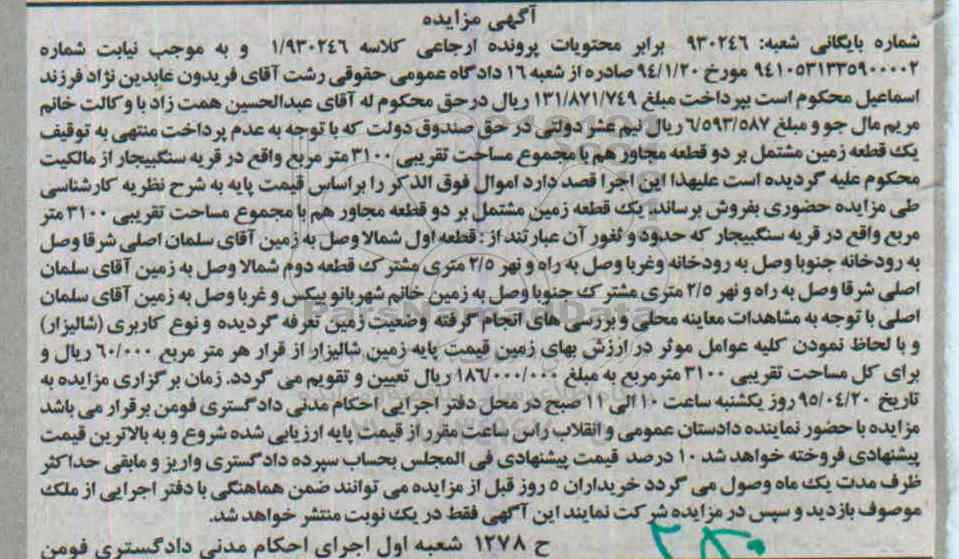 آگهی مزایده
شماره بایگانی شعبه: ۹۳۰۲٤٦ برابر محتویات پرونده ارجاعی کلاسه ۱/۹۳۰۲٤٦ و به موجب نیابت شماره
۹٤۱۰۵۳۱۳۳۵۹۰۰۰۰۲ مورخ ۹٤/۱/۲۰ صادره از شعبه ۱٦ دادگاه عمومی حقوقی رشت آقای فریدون عابدین نژاد فرزند
اسماعیل محکوم است بپرداخت مبلغ ۱۳۱/۸۷۱/۷٤۹ ریال درحق محکوم له آقای عبدالحسین همت زاد با وکالت خانم
مریم مال جو و مبلغ ٦/۵۹۳/۵۸۷ ریال نیم عشر دولتی در حق صندوق دولت که با توجه به عدم پرداخت منتهی به توقیف
یک قطعه زمین مشتمل بر دو قطعه مجاور هم با مجموع مساحت تقریبی ۳۱۰۰ متر مربع واقع در قریه سنگبیجار از مالکیت
محکوم علیه گردیده است علیهذا این اجرا قصد دارد اموال فوق الذکر را براساس قیمت پایه به شرح نظریه کارشناسی
طی مزایده حضوری بفروش برساند. یک قطعه زمین مشتمل بر دو قطعه مجاور هم با مجموع مساحت تقریبی ۳۱۰۰ متر
مربع واقع در قریه سنگبیجار که حدود و ثغور آن عبارتند از: قطعه اول شمالا وصل به زمین آقای سلمان اصلی شرقا وصل
به رودخانه جنوبا وصل به رودخانه وغربا وصل به راه و نهر ۲/۵ متری مشترک قطعه دوم شمالا وصل به زمین آقای سلمان
اصلی شرقا وصل به راه و نهر ۲/۵ متری مشترک جنوبا وصل به زمین خانم شهربانو بیکس و غربا وصل به زمین آقای سلمان
اصلی با توجه به مشاهدات معاینه محلی و بررسی های انجام گرفته وضعیت زمین تعرفه گردیده و نوع کاربری (شالیزار)
و با لحاظ نمودن کلیه عوامل موثر در ارزش بهای زمین قیمت پایه زمین شالیزار از قرار هر متر مربع ٦۰/۰۰۰ ریال و
برای کل مساحت تقریبی ۳۱۰۰ مترمربع به مبلغ ۱۸٦/۰۰۰/۰۰۰ ریال تعیین و تقویم می گردد. زمان برگزاری مزایده به
تاریخ ۹۵/۰٤/۲۰ روز یکشنبه ساعت ۱۰ الی ۱۱ صبح در محل دفتر اجرایی احکام مدنی دادگستری فومن برقرار می باشد
مزایده با حضور نماینده دادستان عمومی و انقلاب راس ساعت مقرر از قیمت پایه ارزیابی شده شروع و به بالاترین قیمت
پیشنهادی فروخته خواهد شد ۱۰ درصد قیمت پیشنهادی فی المجلس بحساب سپرده دادگستری واریز و مابقی حداکثر
ظرف مدت یک ماه وصول می گردد خریداران ۵ روز قبل از مزایده می توانند ضمن هماهنگی با دفتر اجرایی از ملک
موصوف بازدید و سپس در مزایده شرکت نمایند این آگهی فقط در یک نوبت منتشر خواهد شد.
ح ۱۲۷۸ شعبه اول اجرای احکام مدنی دادگستری فومن
ParsNamadData